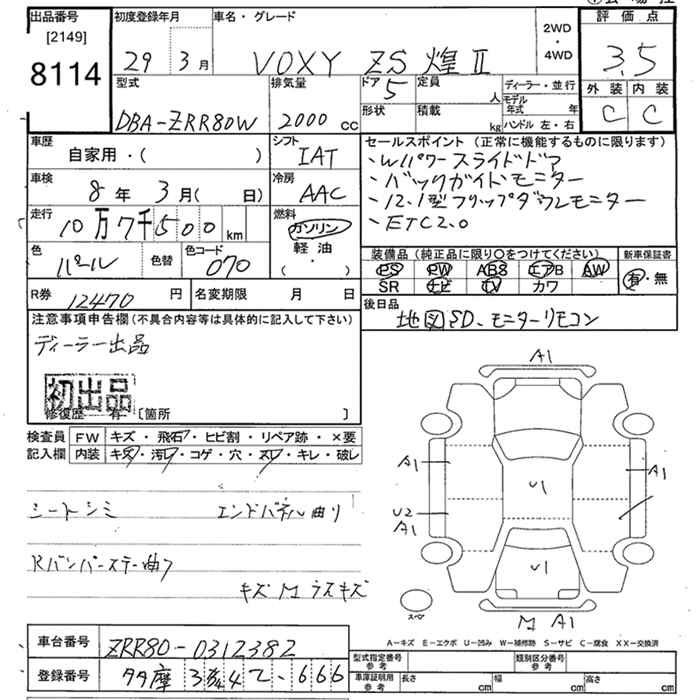 出品番号
[2149]
8114
初度登録年月
29年 3月
車名・グレード
VOXY ZS 煌Ⅱ
2WD
・
4WD
評価点
3.5
外装 内装
C C
型式
DBA-ZRR80W
排気量
2000 cc
ドア
5
定員
人
形状
積載
kg
ディーラー・並行
モデル年式 年
ハンドル 左・右
車歴
自家用・( )
シフト
IAT
車検
8年 3月( 日)
冷房
AAC
走行
10万7千500 km
燃料
ガソリン
軽油
( ・ )
色
パール
色替
色コード
070
R券
12470 円
名変期限 月 日
セールスポイント (正常に機能するものに限ります)
・Wパワースライドドア
・バックガイドモニター
・12.1型フリップダウンモニター
・ETC2.0
装備品 (純正品に限り○をつけてください)
PS PW ABS エアB AW
SR ナビ TV カワ
新車保証書
有・無
後日品
地図SD、モニターリモコン
注意事項申告欄 (不具合内容等は具体的に記入して下さい)
ディーラー出品
初出品
修復歴 有 [箇所 ]
検査員
記入欄
FW キズ・飛石・ヒビ割・リペア跡・×要
内装 キズ・汚レ・コゲ・穴・スレ・キレ・破レ
シートシミ エンドパネル曲り
Rバンパーステー曲り
キズM ラスキズ
A1
A1
A1
U1
U2
A1
U1
スペア
M A1
A-キズ E-エクボ U-凹み W-補修跡 S-サビ C-腐食 XX-交換済
車台番号
ZRR80-0312382
登録番号
多摩
666
型式指定番号
参考
類別区分番号
参考
車庫証明用
参考
長さ cm
幅 cm
高さ cm